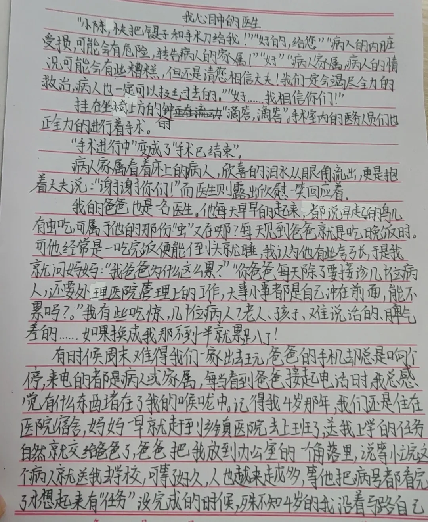 我心目中的医生
"小陈,快把镊子和手术刀给我!""好的,给您!""病人的内脏
受损,可能会有危险,转告病人的家属!""好!""病人家属,病人的情
况可能会有些糟糕,但还是请您相信大夫!我们一定会竭尽全力的
救治,病人也一定可以挺过去的。""好……我相信你们!"
挂在坐椅上方的钟 "滴答,滴答"手术室内的医务人员们也
正全力的进行着手术。
"手术进行中"变成了"手术已结束"。
病人家属看着床上的病人,欣喜的泪水从眼角流出,更是抱
着大夫说:"谢谢你们!"而医生则露出欣慰 笑回应着。
我的爸爸也是一名医生,他每天早早的起来,都说早起的鸟儿
有虫吃,可属于他的那份"虫"又在哪?每天见到爸爸就是吃晚饭时。
可他经常是一吃完饭便能倒头就睡,我认为他有些夸张,于是我
就问妈妈:"我爸爸为什么这么累?""你爸爸每天除了要接诊几 位病
人,还要处理医院管理上的工作,大事小事都是自己冲在前面,能不
累吗?。"我有些吃惊,几 位病人?老人、孩子、难说话的、脾气
差的……如果换成我那不到半就累趴了!
有时候周末难得我们一家出去玩,爸爸的手机却总是响个
停,来电的都是病人或家属,每当看到爸爸接起电话时我总感
觉有什么东西堵在了我的喉咙中,记得我4岁那年,我们还是住在
医院宿舍,妈妈早早就走到乡镇医院去上班了,送我上学的任务
自然就交给爸爸了,爸爸把我放到办公室的一角落里,说等小完这
个病人就送我去学校,可等好久,人也越来越多,等他把病号都看完
了才想起来有"任务"没完成的时候,殊不知4岁的我沿着马路自己